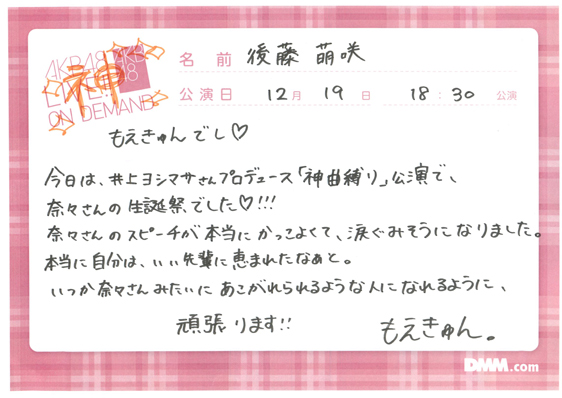 AKB48
LIVE!!
ON DEMAND
神
名前 後藤 萌咲
公演日 12月 19日 18:30 公演
もえきゅんでし♡
今日は、井上ヨシマサさんプロデュース「神曲縛り」公演で、
奈々さんの生誕祭でした♡!!!
奈々さんのスピーチが本当にかっこよくて、涙ぐみそうになりました。
本当に自分は、いい先輩に恵まれたなぁと。
いつか奈々さんみたいにあこがれられるような人になれるように、
頑張ります!!
もえきゅん。
DMM.com